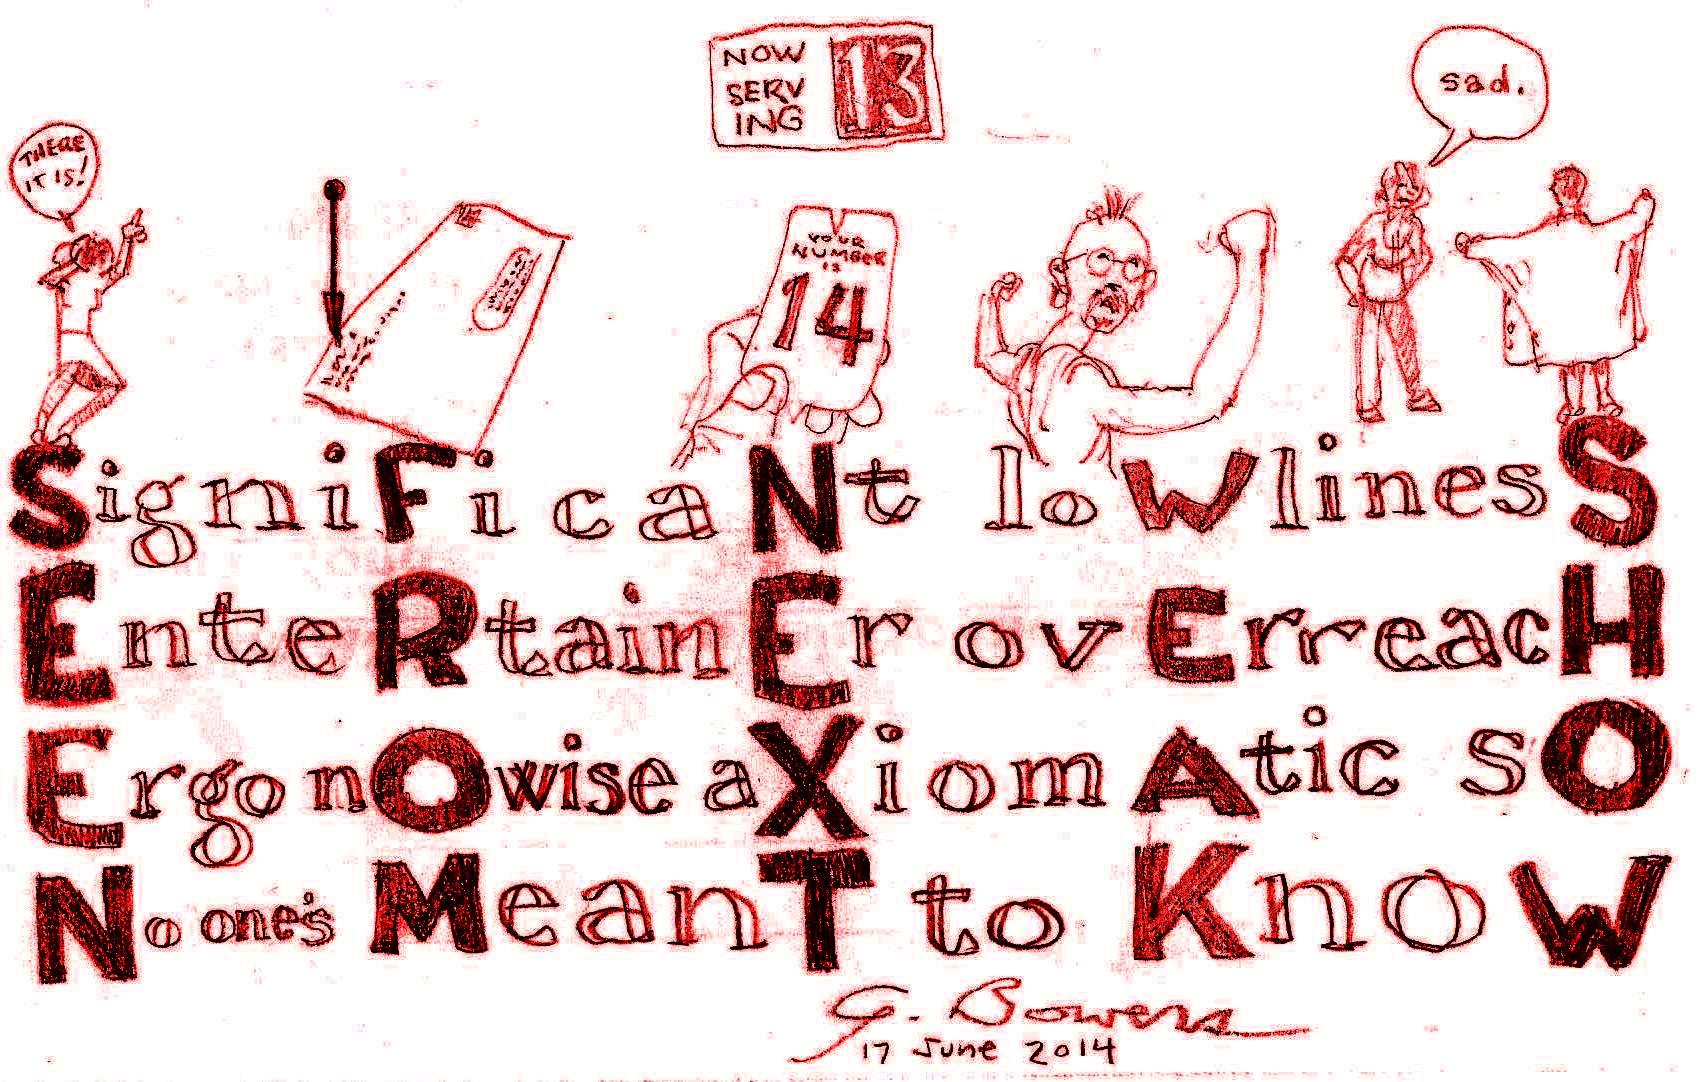 NOW
SERV
ING
13
sad.
THERE
IT IS!
YOUR
NUMBER
IS
14
SigniFicaNt loWlinesS
EnteRtainEr ovErreacH
Ergo nOwise aXiomAtic sO
No one's MeanT to KnoW
G. Bowers
17 June 2014